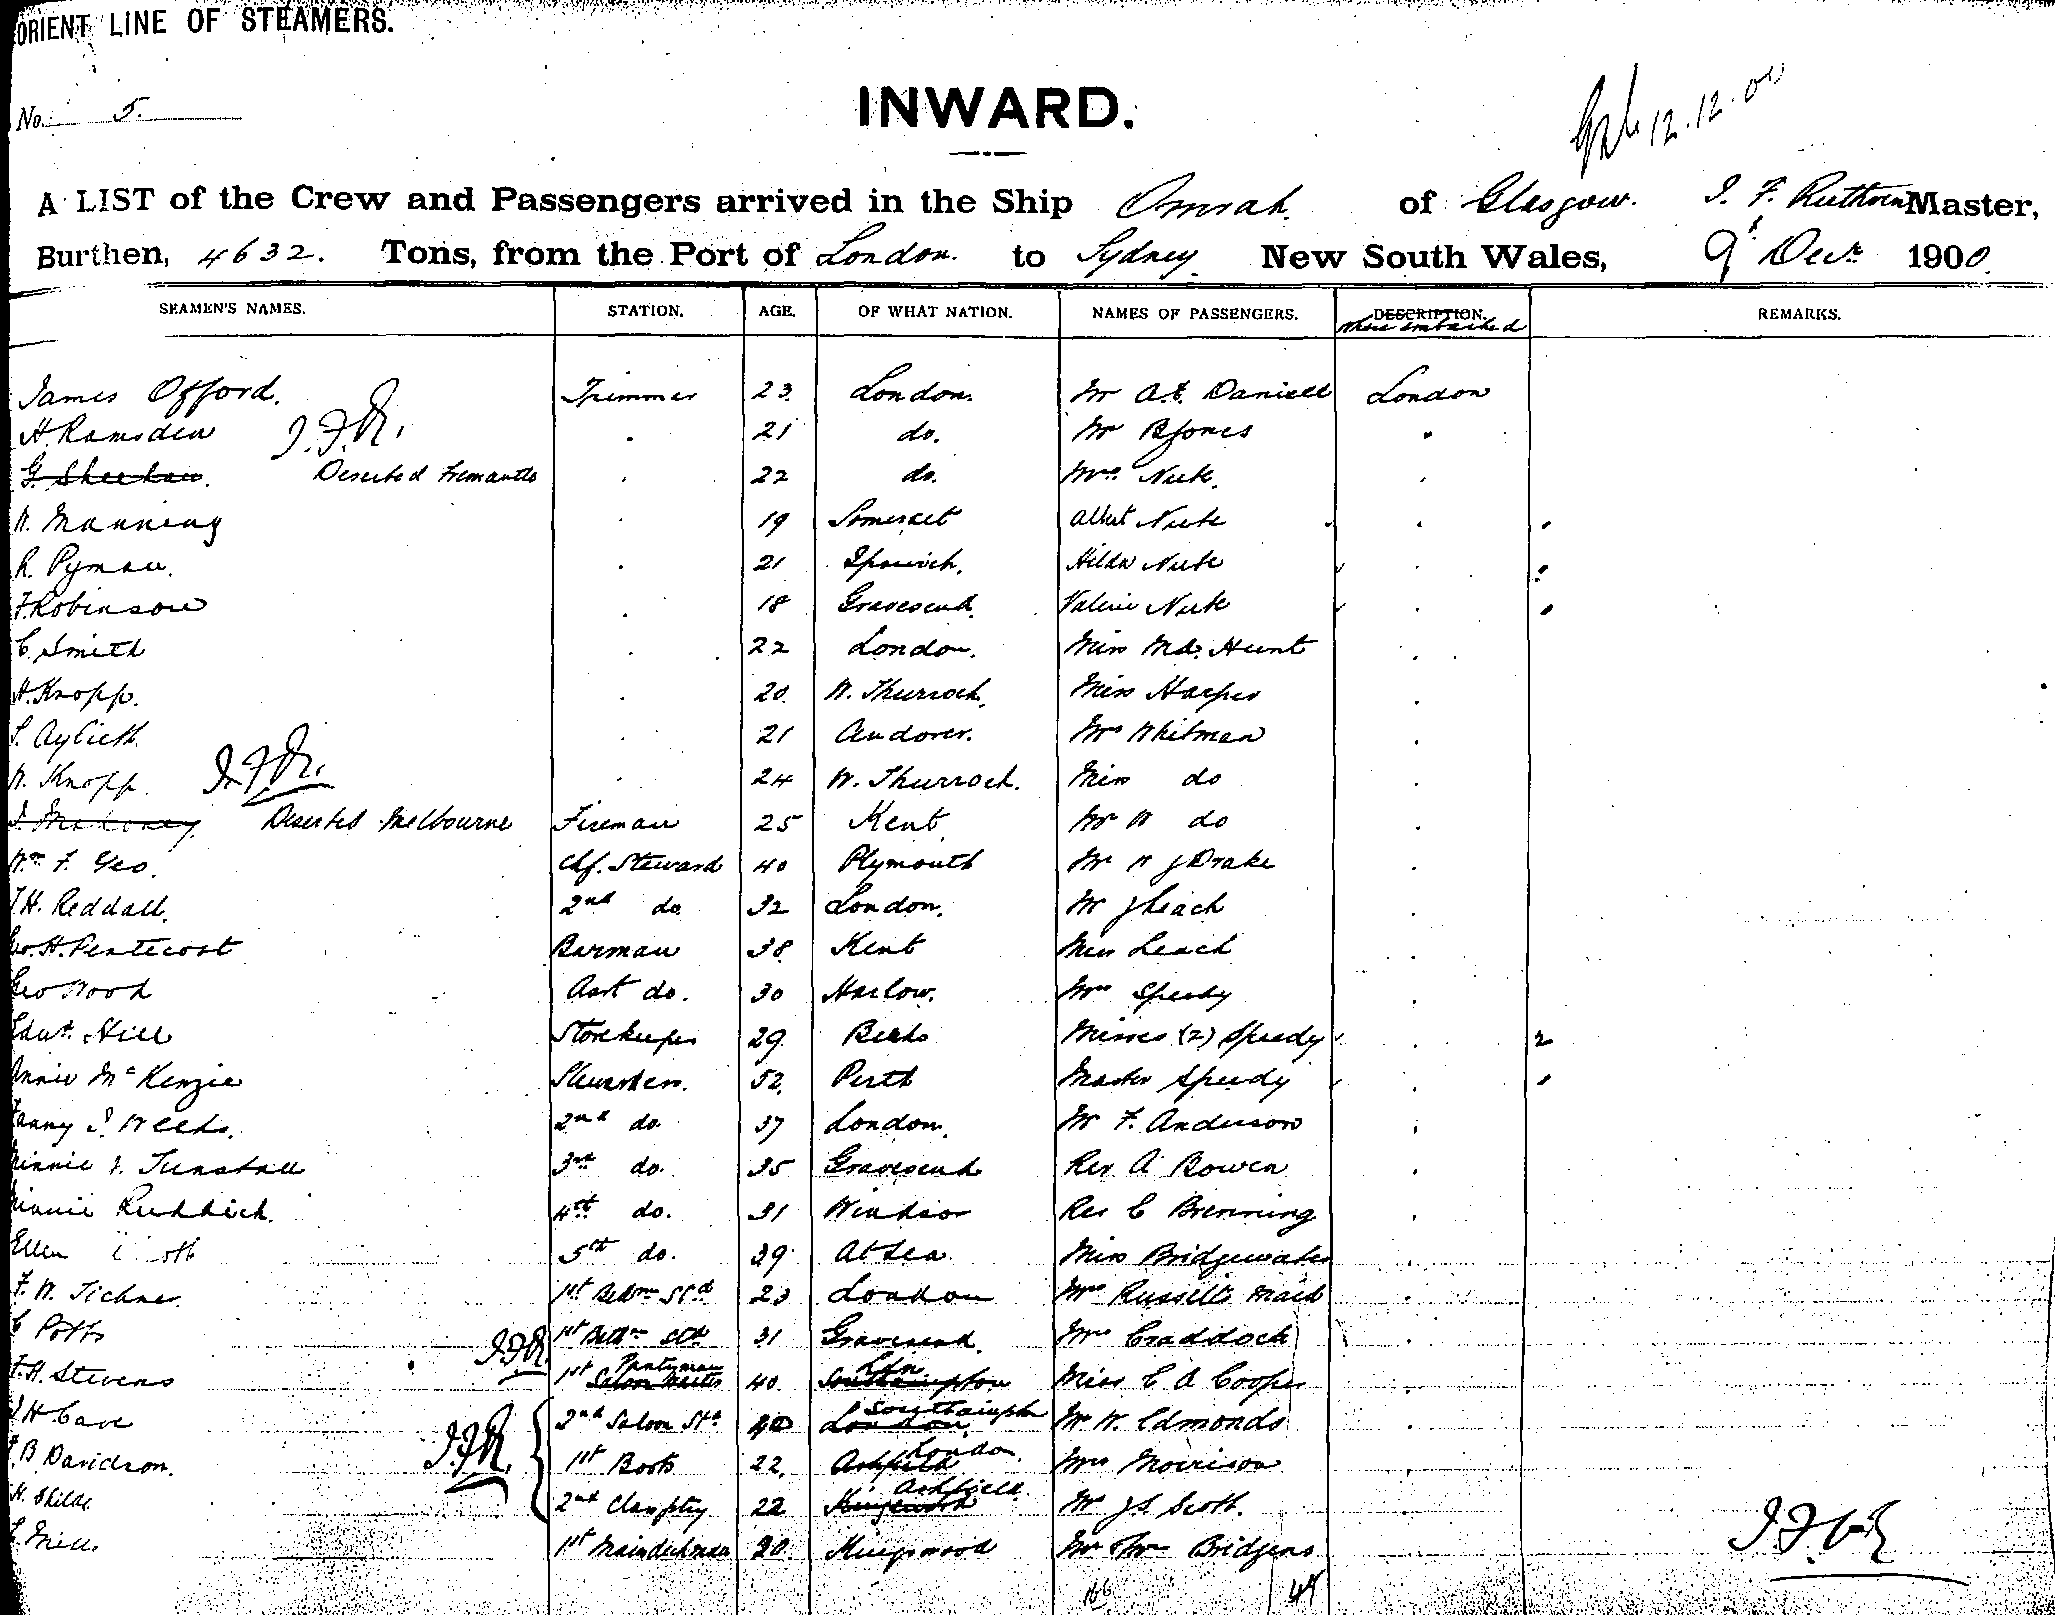 ORIENT LINE OF STEAMERS.
No. 5.
INWARD.
12.12.00
A LIST of the Crew and Passengers arrived in the Ship Omrah. of Glasgow. J. F. Ruthven Master,
Burthen, 4632. Tons, from the Port of London. to Sydney. New South Wales, 9th Decr. 1900.
SEAMEN'S NAMES. STATION. AGE. OF WHAT NATION. NAMES OF PASSENGERS. DESCRIPTION. REMARKS.
where embarked
James Offord. Trimmer 23 London. Mr A.E. Daniell London
H. Ramsden J.F.R. . 21 do. Mr B Jones "
G. Sheehan. Deserted Fremantle . 22 do. Mrs Nute. .
W. Manning . 19 Somerset Albert Nute .
R. Pyman. . 21 Ipswich. Hilda Nute .
F. Robinson . 18 Gravesend. Valerie Nute .
C. Smith . 22 London. Miss Hunt .
H. Knopp. . 20 W. Thurrock. Miss Harper .
S. Aylieth. . 21 Andover. Mrs Whitman .
W. Knopp. J.F.R. . 24 W. Thurrock. Miss do .
J. Mahoney Deserted Melbourne Fireman 25 Kent. Mr W do .
Wm. F. Geo. Chf. Steward 40 Plymouth Mr W J Drake .
J.H. Reddall. 2nd do 32 London. Mr J Leach .
Geo. H. Pentecost Barman 38 Kent Miss Leach .
Geo Wood Asst do. 30 Harlow. Mrs Speedy .
Edwd. Hill Storekeeper 29 Berks Misses (2) Speedy . 2
Annie McKenzie Stewardess. 52. Perth Master Speedy .
Fanny J. Weeks. 2nd do. 37 London. Mr F. Anderson .
Minnie J. Tunstall 3rd do. 35 Gravesend Rev A Bowen .
Minnie Ruddick. 4th do. 31 Windsor Rev C Brenning .
Ellen 5th do. 39 At Sea Miss Bridgewater .
F. W. Tichner. 1st Bedrm Std 23 London Mrs Russell's Maid .
C Potts J.F.R. 1st Bathrm Std 31 Gravesend. Mrs Craddock .
F.H. Stevens 1st Saloon Waiter Pantryman 40 Southampton Ldn Miss C A Cooper .
J H Cave 2nd Saloon Std. 40 London. Southampton Mr W. Edmonds .
F. B. Davidson. J.F.R. 1st Boots 22. Ashfield London. Mrs Morrison .
H. Childe 2nd 22 Kingswood Ashfield. Mr J S Scott. .
F. Mills 1st Maindeckman 20 Kingswood Mr Thos Bridgens J.F.R.